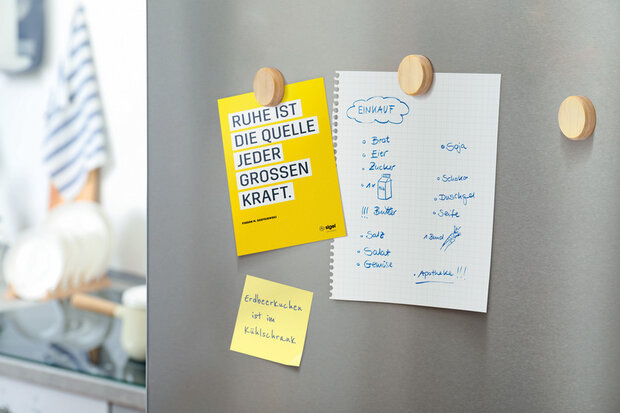 RUHE IST
DIE QUELLE
JEDER
GROSSEN
KRAFT.
sigel
EINKAUF
Brot
Eier
Zucker
1x
!!! Butter
Salz
Salat
Gemüse
Soja
Schoko
Duschgel
Seife
1 Bund
Apotheke!!!
Erdbeerkuchen
ist im
Kühlschrank